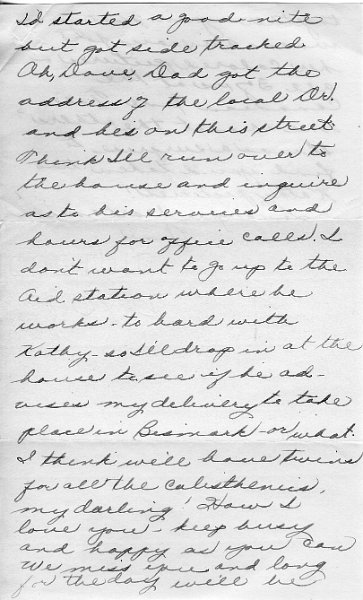 I'd started a good nite
but got side tracked
Oh, Dave, Dad got the
address of the local Dr.
and hes on this street
Think I'll run over to
the house and inquire
as to his services and
hours for office calls. I
don't want to go up to the
Aid station where he
works. to hard with
Kathy - so I'll drop in at the
house to see if he ad-
vises my delivery to take
place in Bismark - or what.
I think we'll have twins
for all the calisthenics,
my darling! How I
love you. keep busy
and happy as you can
We miss you and long
for the day will be